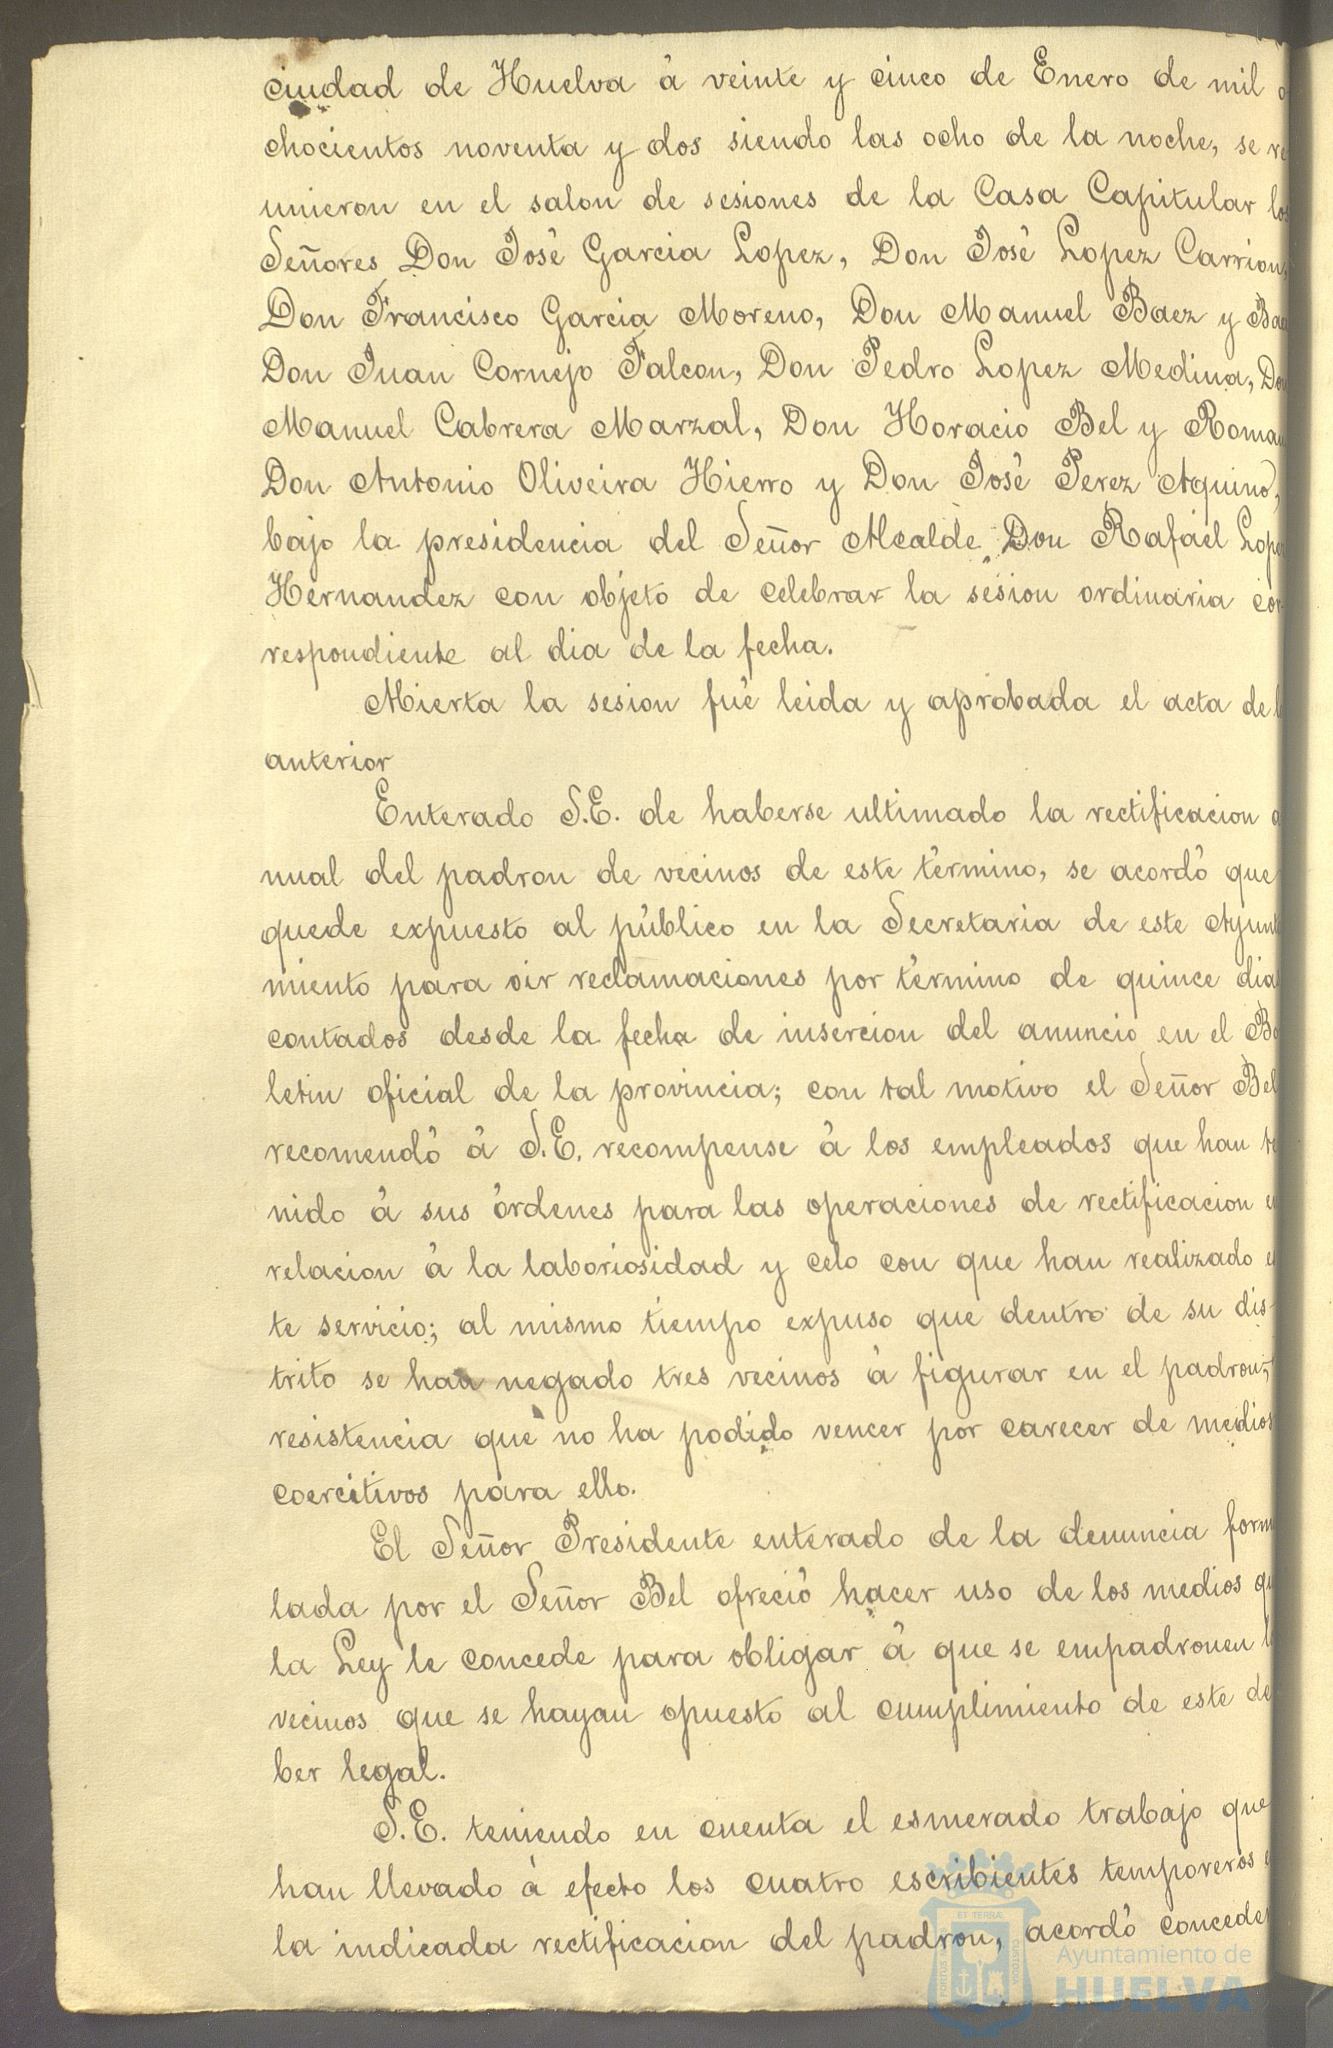 ciudad de Huelva á veinte y cinco de Enero de mil o
chocientos noventa y dos siendo las ocho de la noche, se re
unieron en el salon de sesiones de la Casa Capitular los
Señores Don José Garcia Lopez, Don José Lopez Carrion,
Don Francisco Garcia Moreno, Don Manuel Baez y Bae
Don Juan Cornejo Falcon, Don Pedro Lopez Medina, Don
Manuel Cabrera Marzal, Don Horacio Bel y Roman
Don Antonio Oliveira Hierro y Don José Perez Aquino,
bajo la presidencia del Señor Alcalde Don Rafael Lope
Hernandez con objeto de celebrar la sesion ordinaria cor
respondiente al dia de la fecha.
Abierta la sesion fué leida y aprobada el acta de l
anterior
Enterado S.E. de haberse ultimado la rectificacion a
nual del padron de vecinos de este término, se acordó que
quede expuesto al público en la Secretaria de este Ayunta
miento para oir reclamaciones por término de quince dia
contados desde la fecha de insercion del anuncio en el Bo
letin oficial de la provincia; con tal motivo el Señor Bel
recomendó á S.E. recompense á los empleados que han te
nido á sus órdenes para las operaciones de rectificacion en
relacion á la laboriosidad y celo con que han realizado es
te servicio; al mismo tiempo expuso que dentro de su dis-
trito se han negado tres vecinos á figurar en el padron,
resistencia que no ha podido vencer por carecer de medios
coercitivos para ello.
El Señor Presidente enterado de la denuncia formu
lada por el Señor Bel ofreció hacer uso de los medios qu
la Ley le concede para obligar á que se empadronen l
vecinos que se hayan opuesto al cumplimiento de este de
ber legal.
S.E. teniendo en cuenta el esmerado trabajo que
han llevado á efecto los cuatro escribientes temporeros e
la indicada rectificacion del padron, acordó conceder
ET TERRÆ
PORTUS MARIS
CUSTODIA
Ayuntamiento de
HUELVA